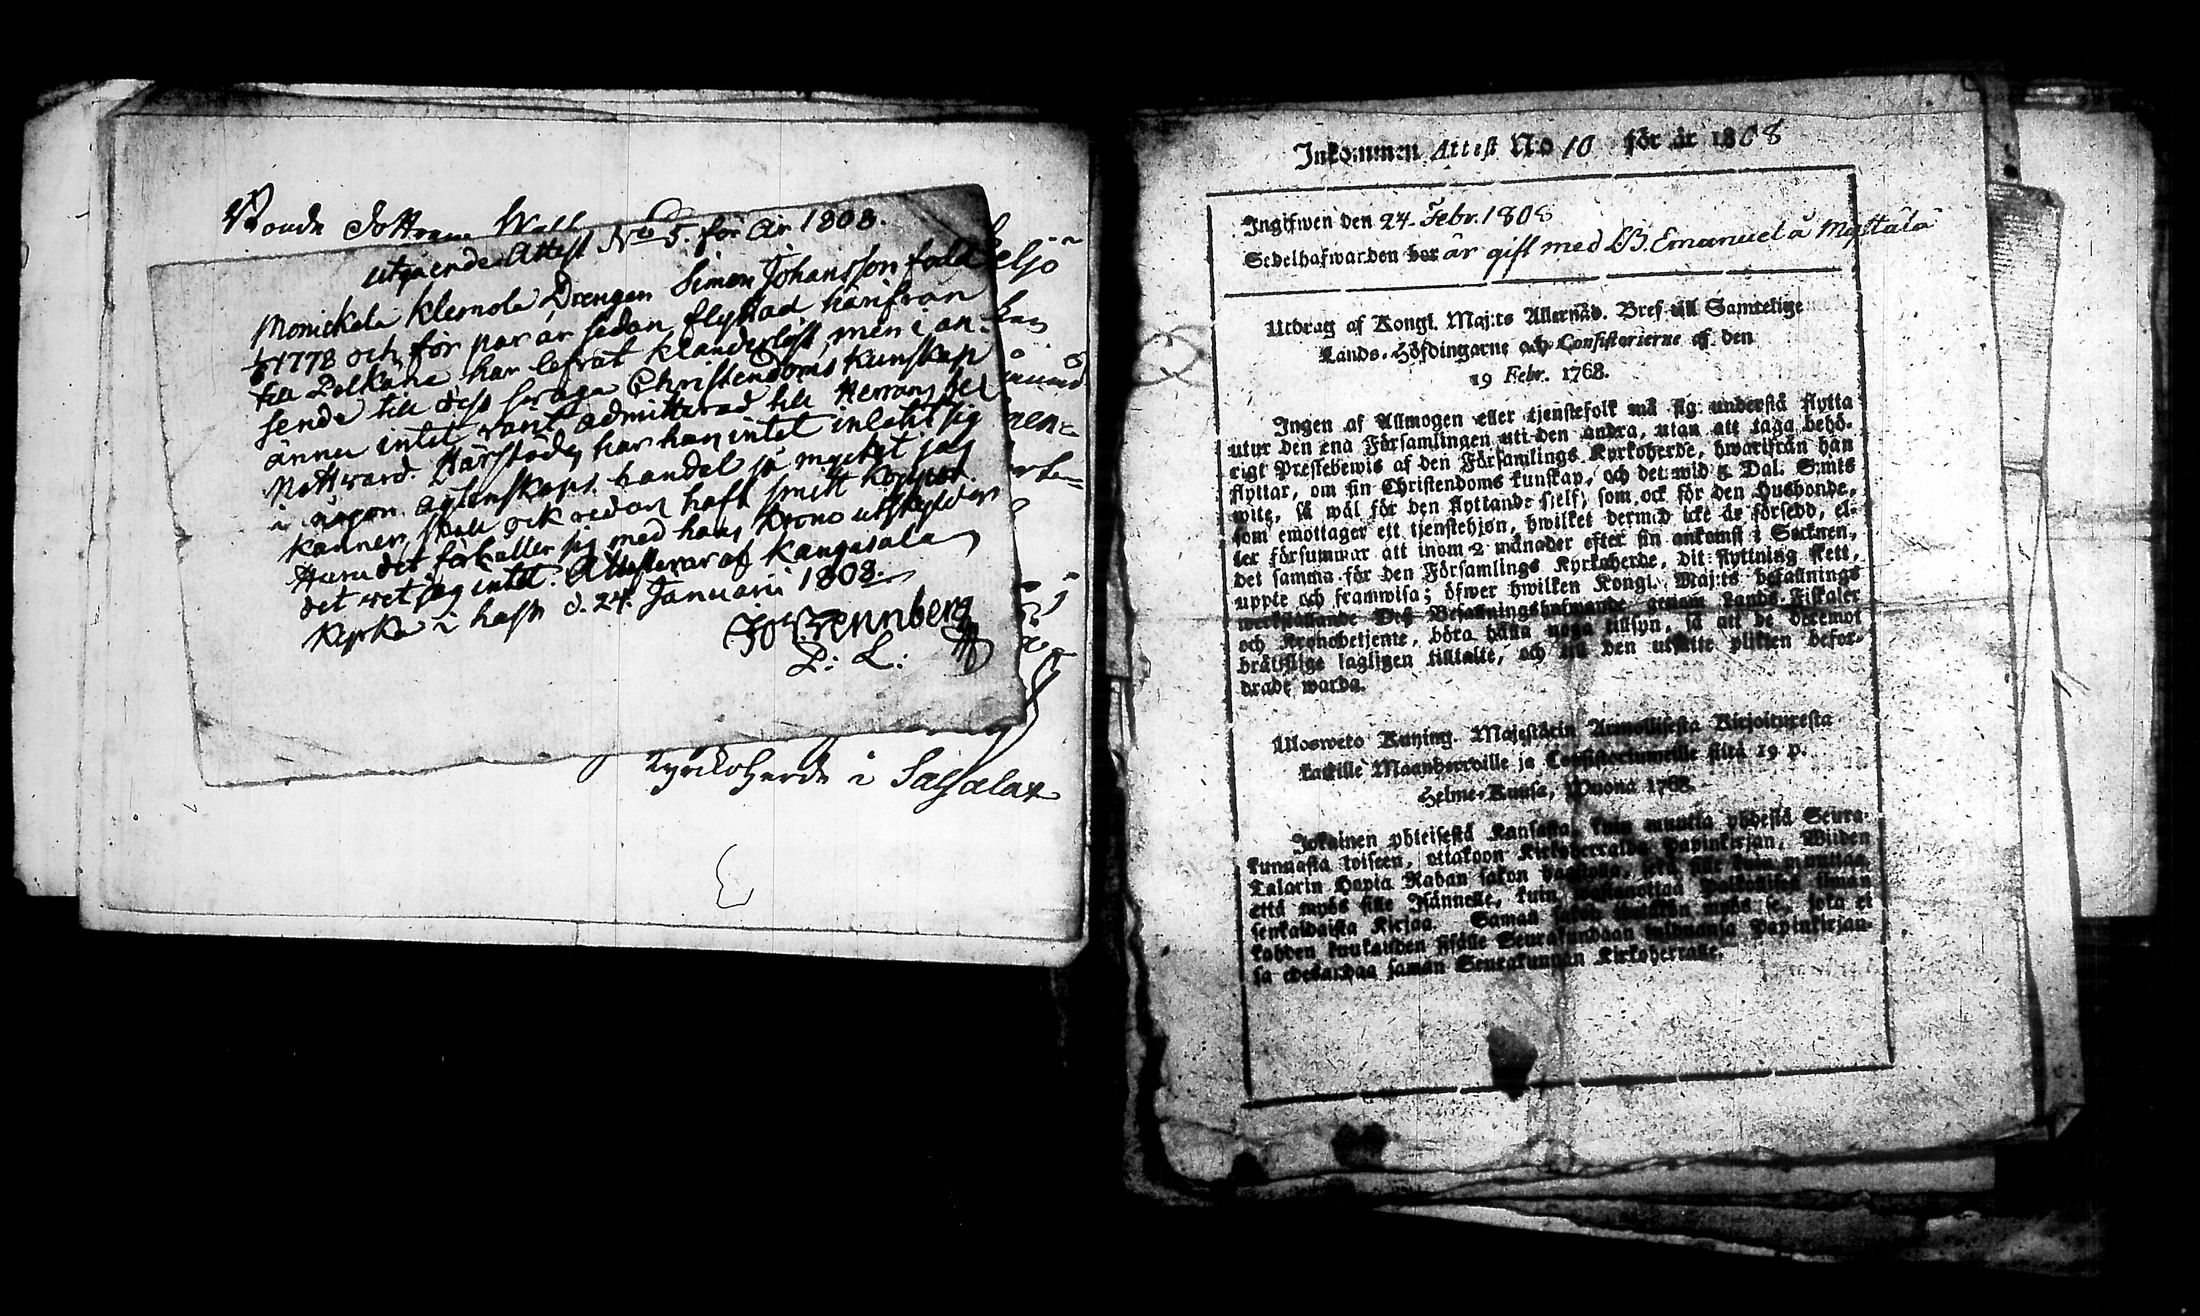 Bonde Dottren
eljö
utgående Attest No 5. för år 1808.
Monickala Klemola Drengen Simon Johansson född
1778 och för par år sedan flyttad härifrån
till Pelkäne har lefvat klanderlöst, men i an-
sende till dess svaga Christendoms kunskap
ännu intet varit admitterad till Herrans hel
Nattward. Härstädes har han intet inlåtit sig
i någon ägtenskaps handel så mycket jag
känner, skall ock redan haft smitt koppor.
Huru det förhåller sig med hans Krono utskylder
det vet jag intet. Attesterar af Kangasala
Kyrka i hast d. 24. Januarii 1808.
P: L:
Kyrckoherde i
Inkommen Attest N:o 10 för år 1808
Ingifwen den 24. Febr. 1808
Sedelhafwarden har är gift med Emanuel å
Utdrag af Kongl. Maj:ts Allernåd. Bref till Samtelige
Lands-Höfdingarne och Consistorierne af den
19 Febr. 1768.
Ingen af Allmogen eller tjenstefolk må sig understå flytta
utur den ena Församlingen uti den andra, utan att taga behö-
rigt Prestebewis af den Församlings Kyrkoherde, hwarifrån han
flyttar, om sin Christendoms kunskap, och det wid 5 Dal. S:mts
wite, så wäl för den flyttande sielf, som ock för den Husbonde,
som emottager ett tjenstehjon, hwilket dermed icke är försedd, el-
ler försummar att inom 2 månader efter sin ankomst i Socknen,
det samma för den Församlings Kyrkoherde, dit flyttning skett,
uppte och framwisa; öfwer hwilken Kongl. Maj:ts befallnings
werkställande Dess Befallningshafwande genom Lands-Fiskaler
och Kronobetjente, böra hålla noga tillsyn, så att de deremot
brättslige lagligen tilltalte, och till den utsatte plikten befor-
drade warda.
Ulosweto Kuning. Majestätin Armollisesta Kirjoituxesta
kaikille Maanherroille ja Consistoriumeille siltä 19 p.
Helme-Kuusa, Wuona 1768.
Jokainen yhteisestä Kansasta, kuin muutta yhdestä Seura-
kunnasta toiseen, ottakoon Kirkoherralda Papinkirjan, Wiiden
Talarin Hopia Rahan sakon haastolla, sekä sille kuin muuttaa,
että myös sille Isännelle, kuin wastanottaa Palkollisen ilman
senkaldaista Kirjaa. Saman sakon myös se, joka ei
kahden kuukauden sisälle Seurakundaan tulduansa Papinkirjan-
sa edeskannaa saman Seurakunnan Kirkoherralle.